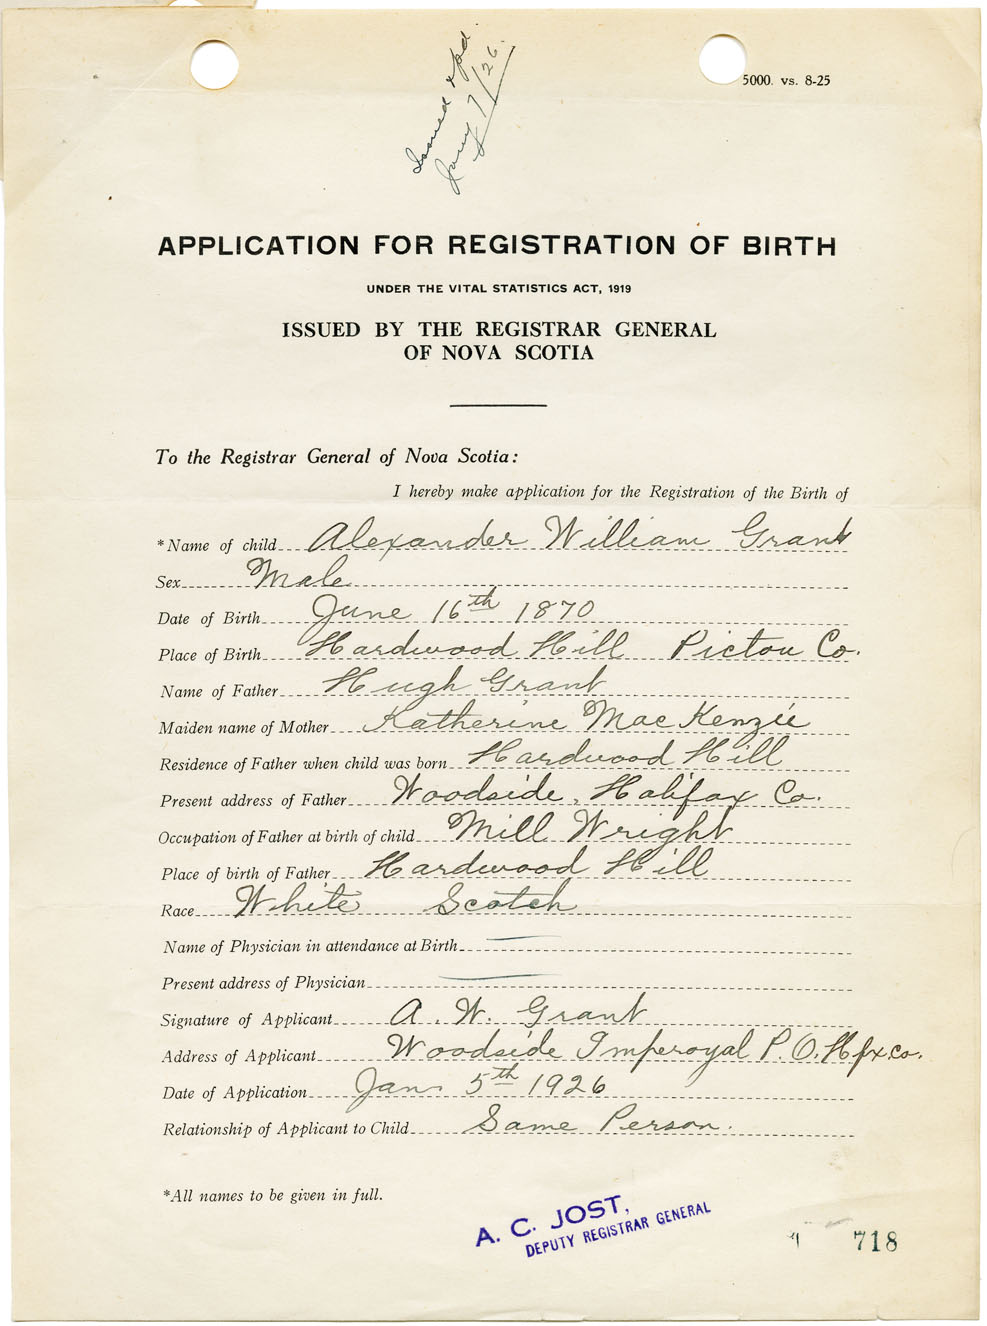 Issued & pd
Jany 7/26.
5000. vs. 8-25
APPLICATION FOR REGISTRATION OF BIRTH
UNDER THE VITAL STATISTICS ACT, 1919
ISSUED BY THE REGISTRAR GENERAL
OF NOVA SCOTIA
To the Registrar General of Nova Scotia:
I hereby make application for the Registration of the Birth of
*Name of child Alexander William Grant
Sex Male
Date of Birth June 16th 1870
Place of Birth Hardwood Hill Pictou Co.
Name of Father Hugh Grant
Maiden name of Mother Katherine MacKenzie
Residence of Father when child was born Hardwood Hill
Present address of Father Woodside, Halifax Co.
Occupation of Father at birth of child Mill Wright
Place of birth of Father Hardwood Hill
Race White Scotch
Name of Physician in attendance at Birth —
Present address of Physician —
Signature of Applicant A. W. Grant
Address of Applicant Woodside Imperoyal P.O. Hfx. Co.
Date of Application Jan. 5th 1926
Relationship of Applicant to Child Same Person.
*All names to be given in full.
A. C. JOST,
DEPUTY REGISTRAR GENERAL
718